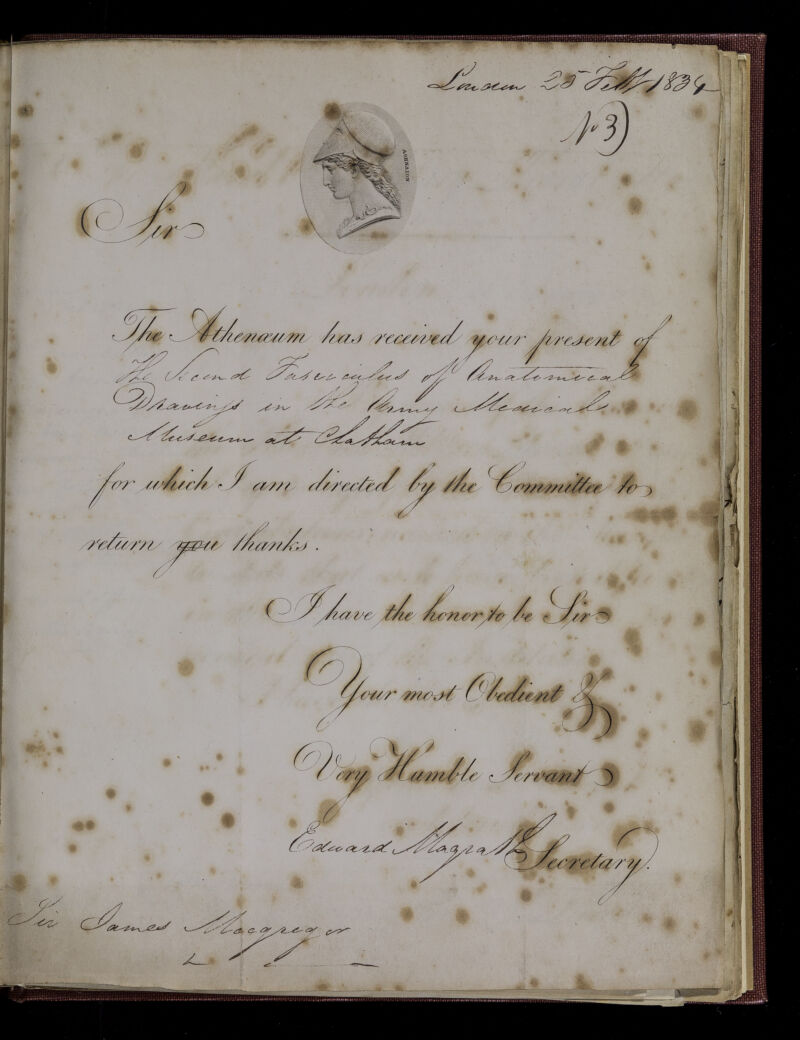 London 25 Feb 1834
No 3)
ATHENAEUM
Sir
The Athenæum has received your present of
the Second Fasciculus of Anatomical
Drawings in the Army Medical
Museum at Chatham
for which I am directed by the Committee to
return you thanks.
I have the honor to be Sir
Your most Obedient &
Very Humble Servant
Edward Magrath Secretary.
Sir James Macgregor